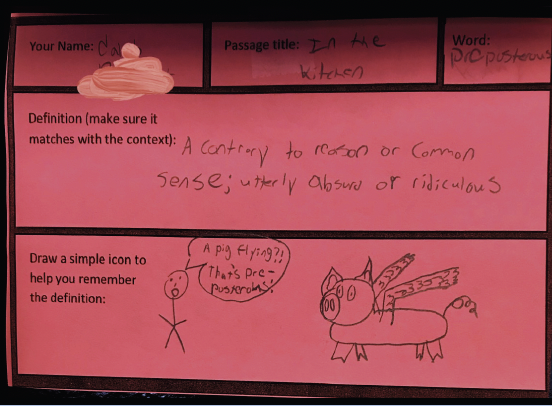 Your Name:
Passage title: In the
Kitchen
Word:
Preposterous
Definition (make sure it
matches with the context): A contrary to reason or Common
Sense; utterly absurd or ridiculous
Draw a simple icon to
help you remember
the definition:
A pig flying?!
That's pre-
posterous!